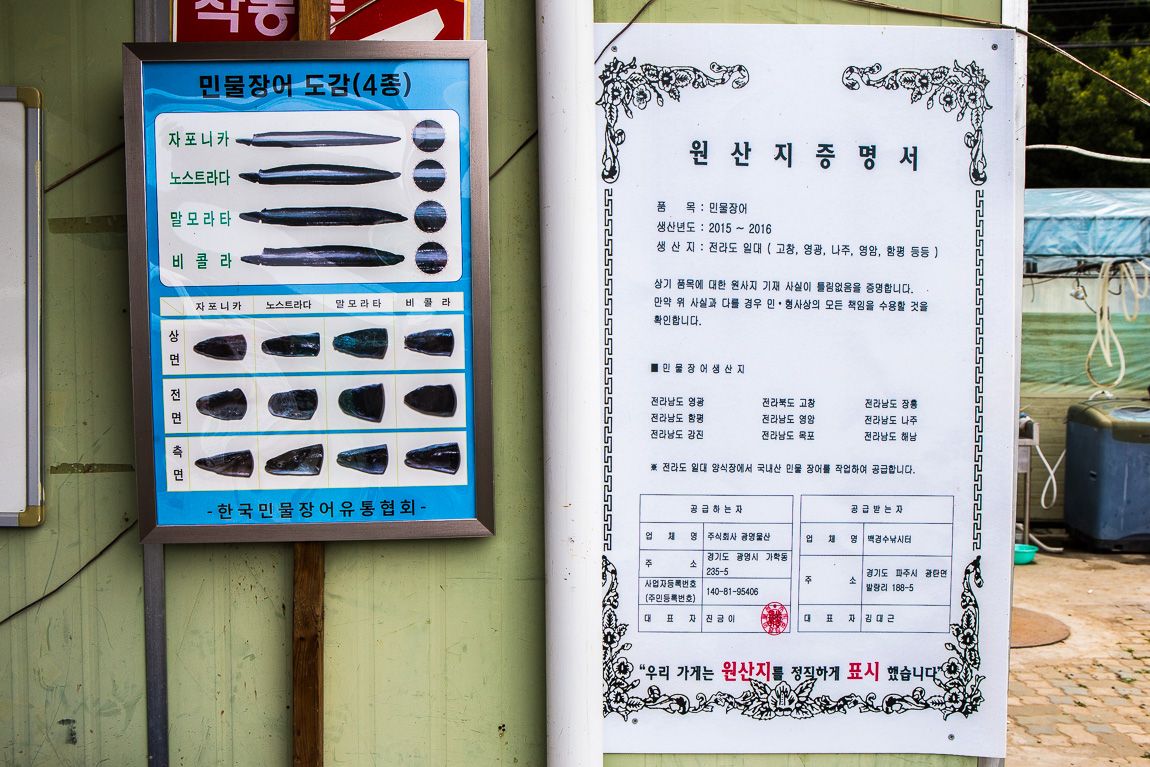 민물장어 도감(4종)
자포니카
노스트라다
말모라타
비콜라
자포니카 노스트라다 말모라타 비콜라
상면
전면
측면
-한국민물장어유통협회-
원산지증명서
품 목 : 민물장어
생산년도 : 2015 ~ 2016
생 산 지 : 전라도 일대 ( 고창, 영광, 나주, 영암, 함평 등등 )
상기 품목에 대한 원사지 기재 사실이 틀림없음을 증명합니다.
만약 위 사실과 다를 경우 민·형사상의 모든 책임을 수용할 것을
확인합니다.
■ 민물장어생산지
전라남도 영광 전라북도 고창 전라남도 장흥
전라남도 함평 전라남도 영암 전라남도 나주
전라남도 강진 전라남도 목포 전라남도 해남
※ 전라도 일대 양식장에서 국내산 민물 장어를 작업하여 공급합니다.
공급하는자 공급받는자
업체명 주식회사 광명물산 업체명 백경수낚시터
주소 경기도 광명시 가학동 235-5 주소 경기도 파주시 광탄면 발랑리 188-5
사업자등록번호 (주민등록번호) 140-81-95406
대표자 진금이 대표자 김대근
“우리 가게는 원산지를 정직하게 표시 했습니다”